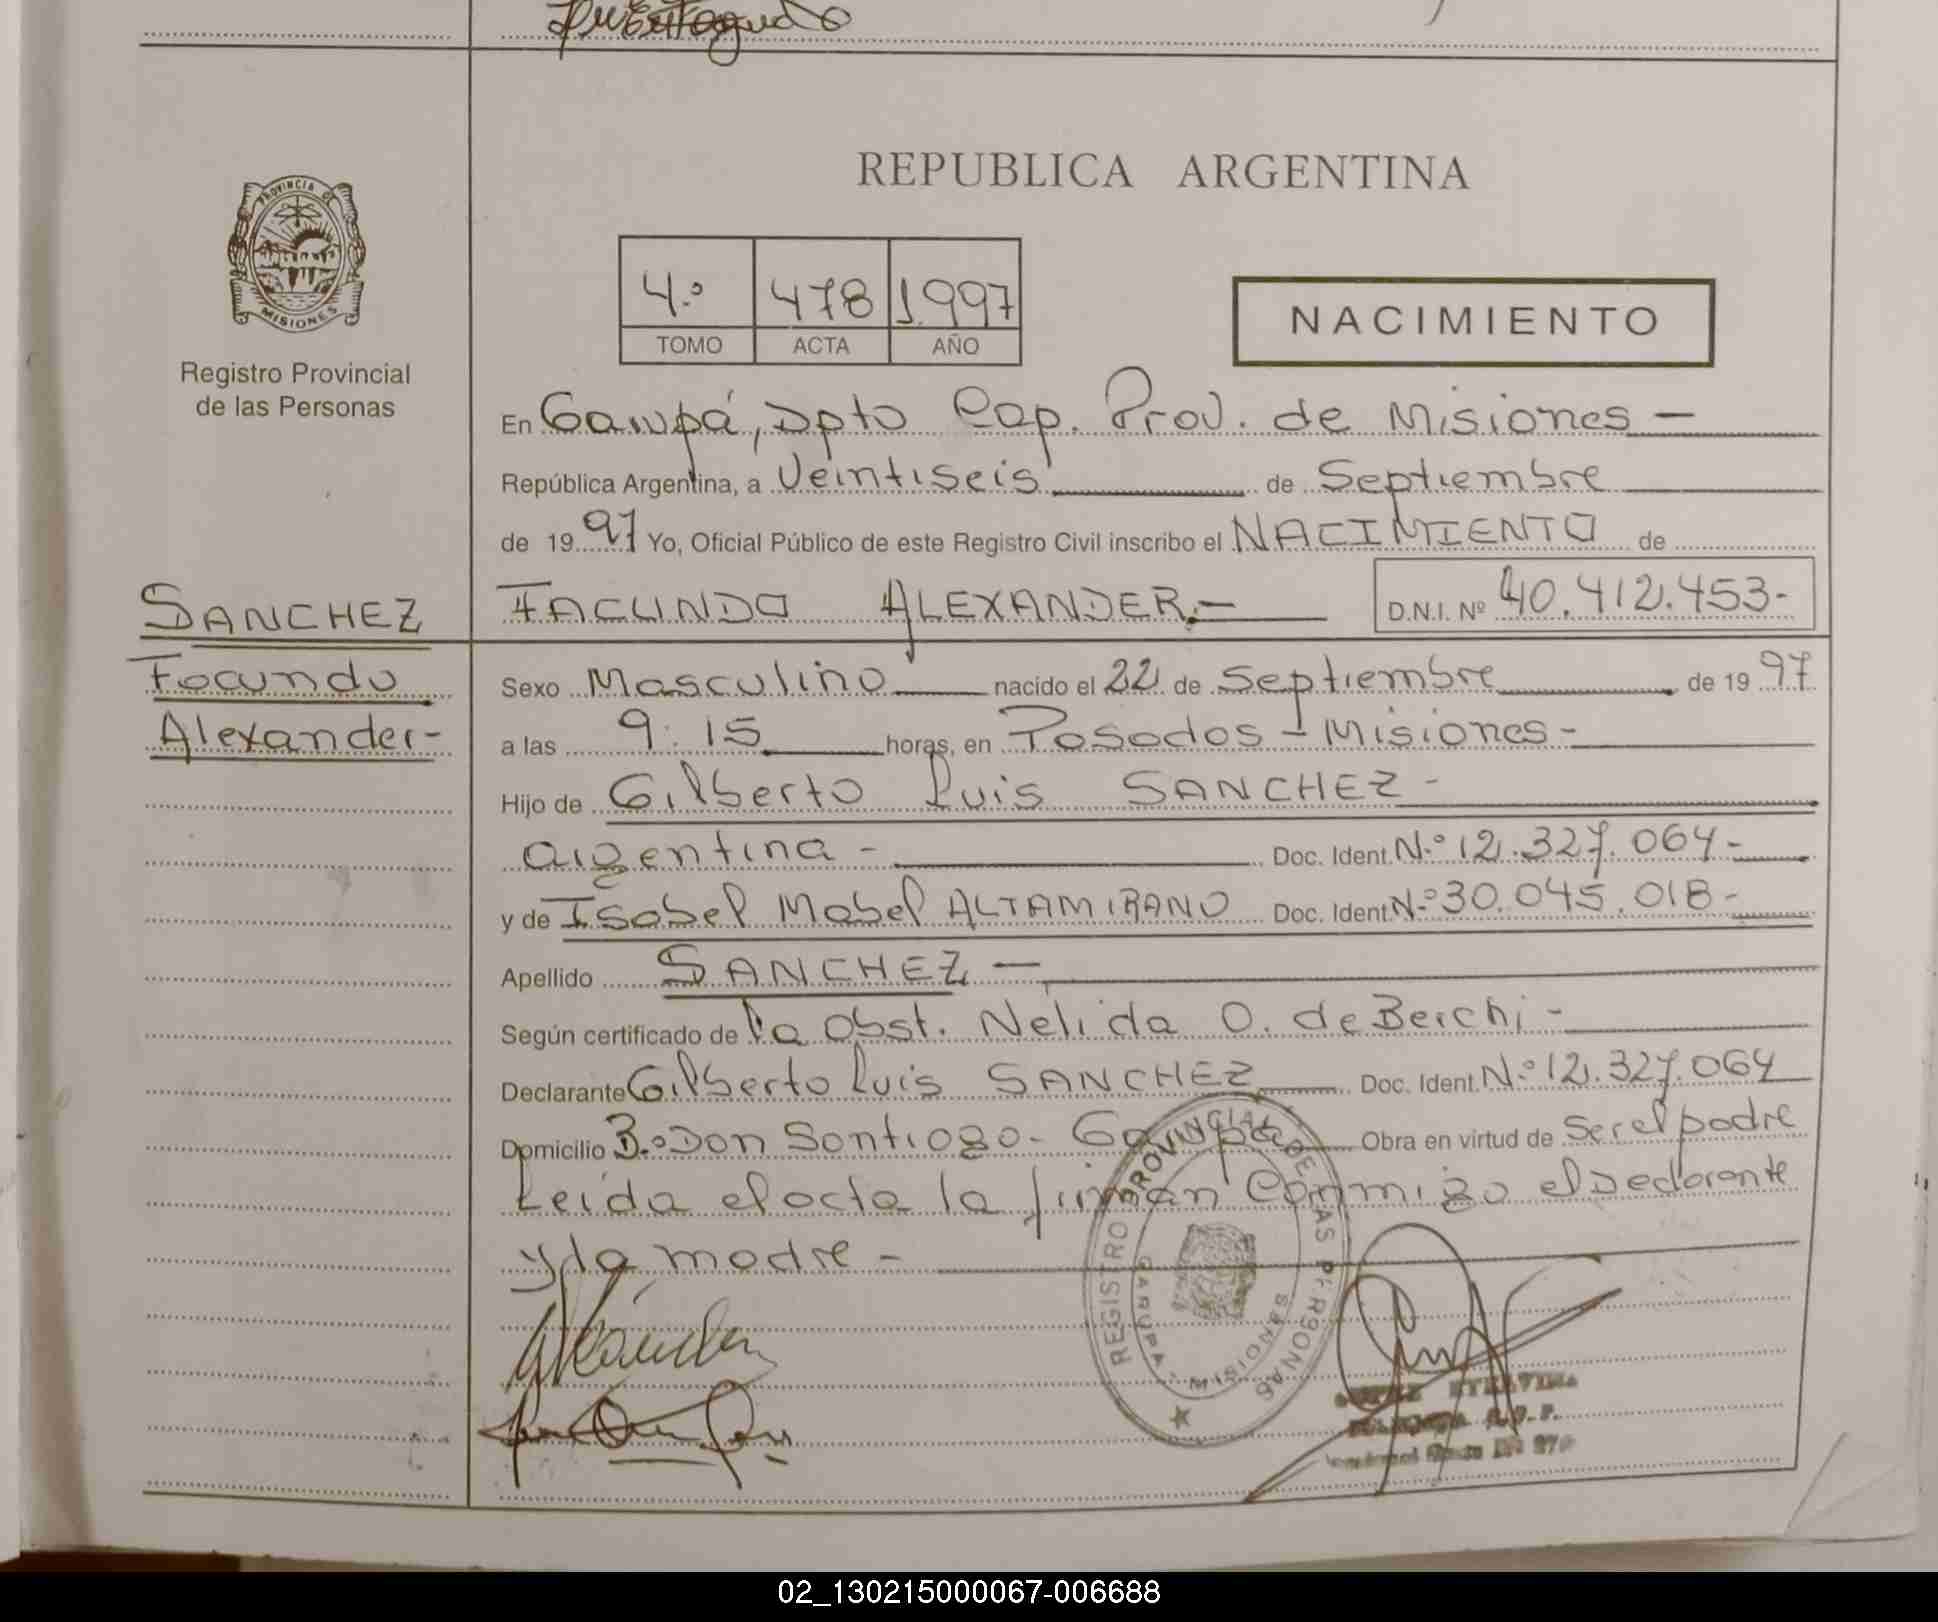 PROVINCIA DE
MISIONES
Registro Provincial
de las Personas
REPUBLICA ARGENTINA
4.º 478 1.997
TOMO ACTA AÑO
NACIMIENTO
En Garupá, Dpto Cap. Prov. de Misiones -
República Argentina, a Veintiseis de Septiembre
de 1997 Yo, Oficial Público de este Registro Civil inscribo el NACIMIENTO de
SANCHEZ
Facundo
Alexander-
FACUNDO ALEXANDER.- D.N.I. Nº 40.412.453-
Sexo Masculino nacido el 22 de Septiembre de 1997
a las 9:15 horas, en Posadas - Misiones -
Hijo de Gilberto Luis SANCHEZ -
argentina - Doc. Ident. N.º 12.327.064-
y de Isabel Mabel ALTAMIRANO Doc. Ident. N.º 30.045.018-
Apellido SANCHEZ -
Según certificado de la Obst. Nelida O. de Berchi -
Declarante Gilberto Luis SANCHEZ Doc. Ident. N.º 12.327.064
Domicilio B.º Don Santiago - Garupá Obra en virtud de Ser el padre
Leida el acta la firman Conmigo el Declarante
y la madre -
REGISTRO PROVINCIAL DE LAS PERSONAS
GARUPA - MISIONES
02_130215000067-006688